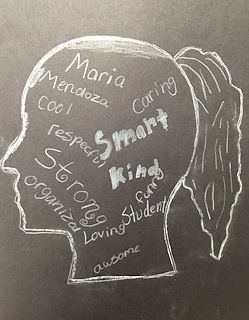 Maria
Mendoza
Caring
Cool
respectful
Smart
Kind
Strong
funny
organized
Student
Loving
awsome